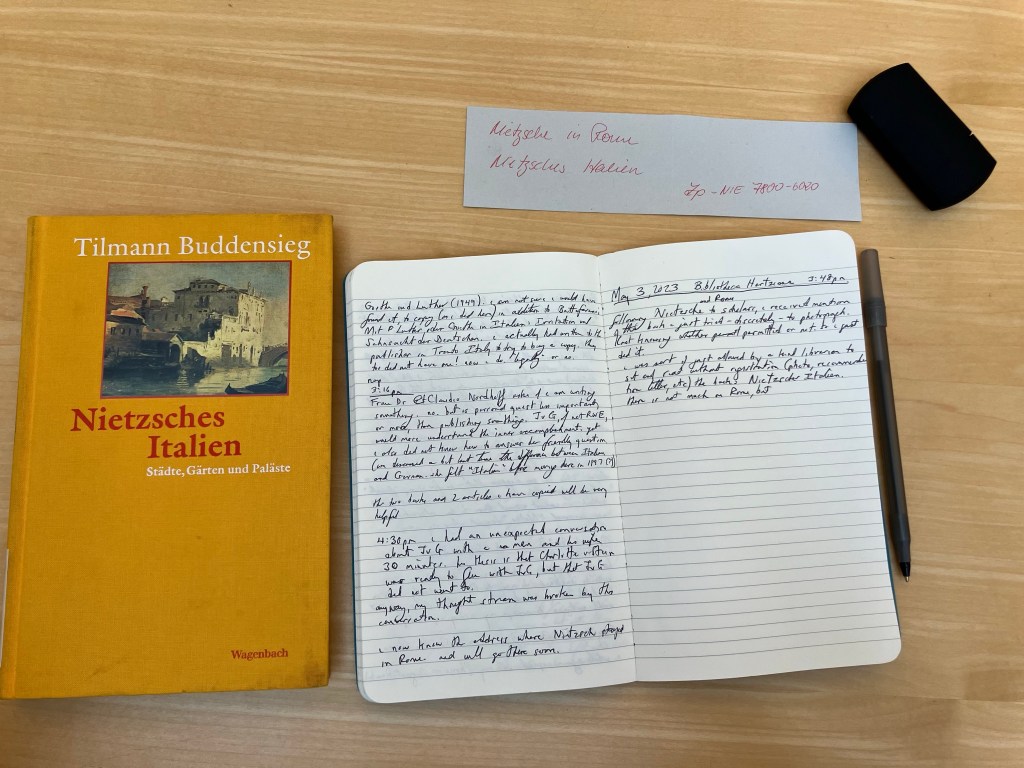 Nietzsche in Rome
Nietzsches Italien
Zp-NIE 7800-6000
Tilmann Buddensieg
Nietzsches
Italien
Städte, Gärten und Paläste
Wagenbach
Goethe und Luther (1949). i am not sure i would have
found it, to copy
Sehnsucht der Deutschen. i actually had written to the
publisher in Trento Italy to try to buy a copy. they
too did not have one! now i do "legally" or no.
3:16 pm
Frau Dr. Claudia Nordhoff asked if i am writing
something. no. but is personal quest less important,
or more, than publishing something. JvG, if not RWE,
would more understand the inner accomplishment. yet
i also did not know how to answer her friendly question
and German. she felt "Italian" before moving here in 1997 (?)
the two books and 2 articles i have copied will be very
helpful
4:30pm i had an unexpected conversation
about JvG with a woman and his wife
30 minutes. his thesis is that Charlotte v. Stein
was ready to flee with JvG, but that JvG
did not want to.
anyway, my thought stream was broken by this
conversation.
i now know the address where Nietzsche stayed
in Rome and will go there soon.
May 3, 2023 Bibliotheca Hertziana 3:48pm
and Rome
following Nietzsche to scholars, i received mention
of this book - just tried - discretely - to photograph.
not knowing whether permitted or not to i just
did it.
i was sort of just allowed by a kind librarian to
sit and read without registration (photo, recommendation
letter, etc) the book: Nietzsches Italien.
there is not much on Rome, but